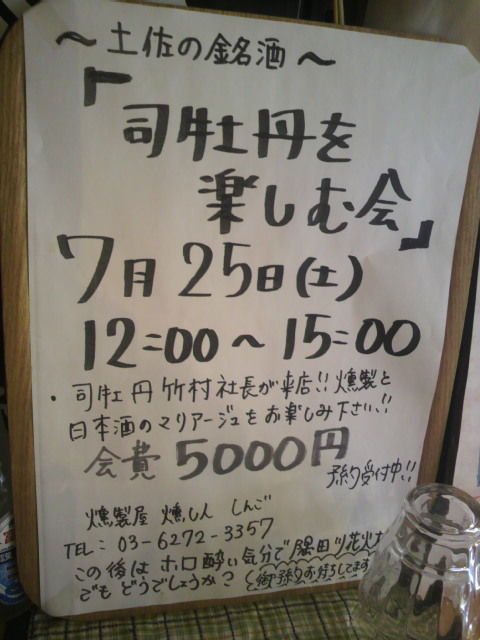 ～土佐の銘酒～
「司牡丹を
楽しむ会」
7月25日(土)
12:00～15:00
・司牡丹竹村社長が来店!!燻製と
日本酒のマリアージュをお楽しみ下さい!!
会費 5000円
予約受付中!!
燻製屋 燻し人 しんご
TEL: 03-6272-3357
この後はホロ酔い気分で隅田川花火
でもどうでしょうか? ご予約お待ちしてます